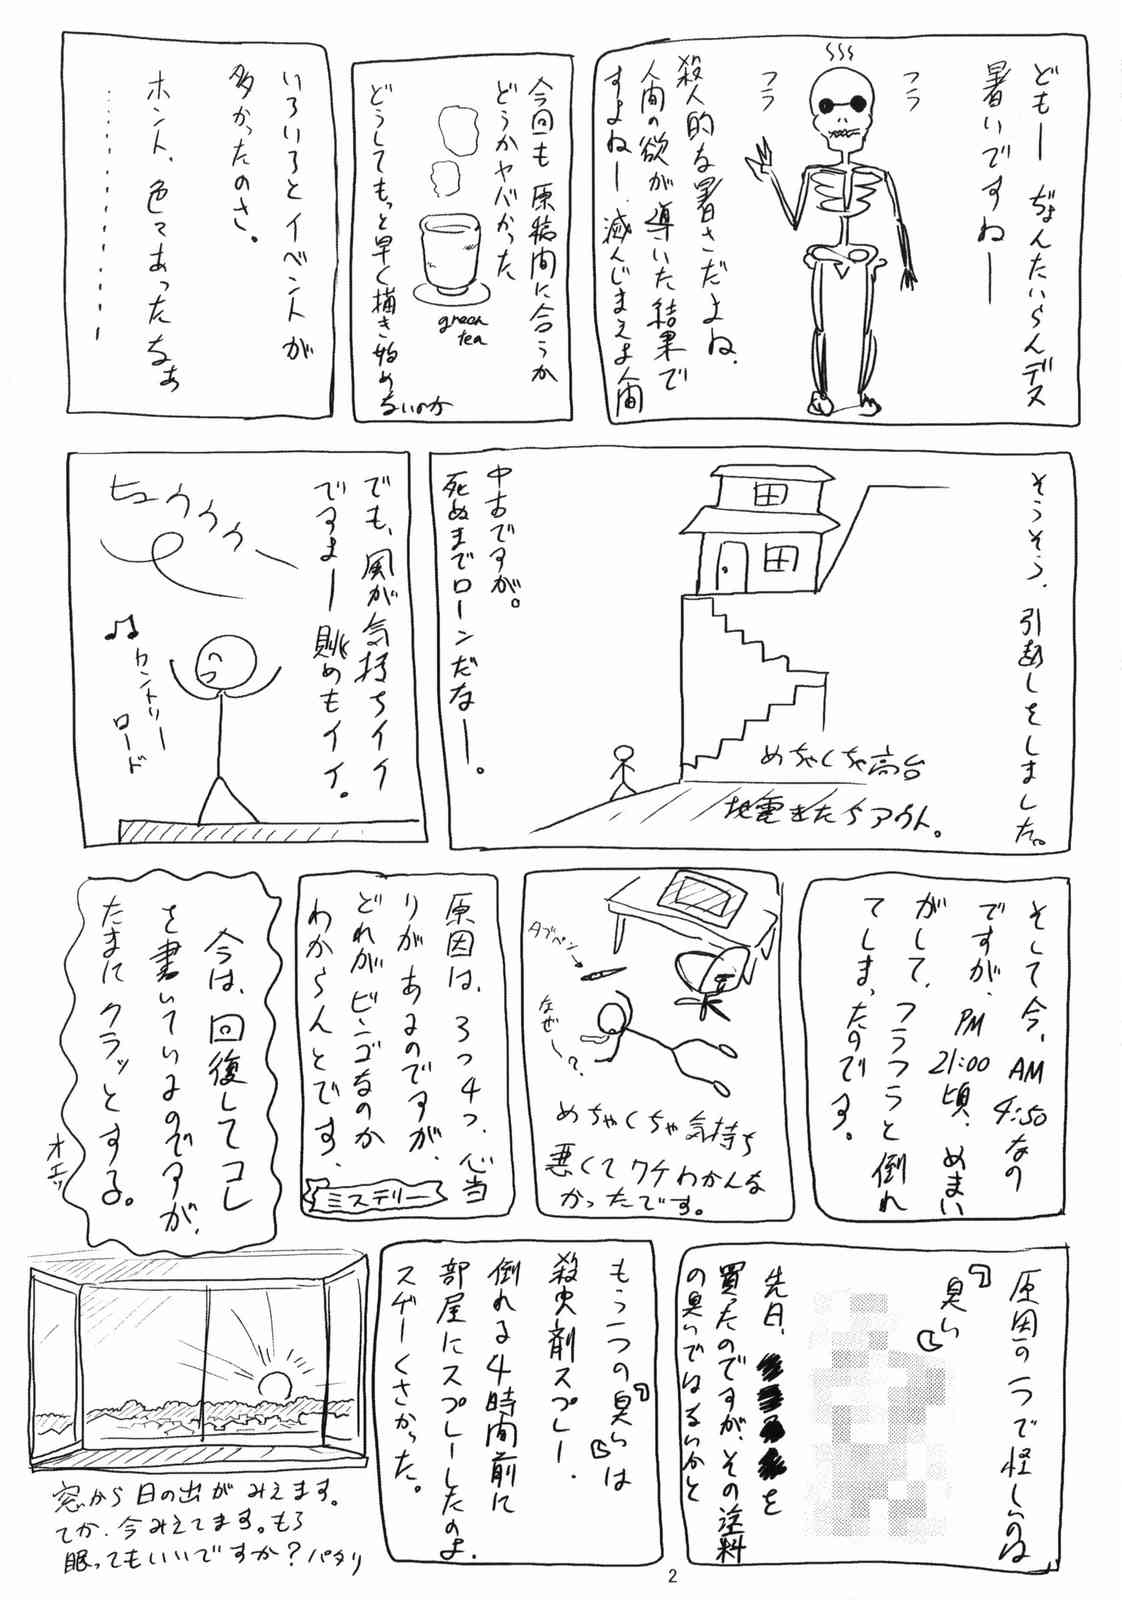 どもー ぢょんたいらんデス
暑いですねー
フラ
フラ
殺人的な暑さだよね、
人間の欲が導いた結果で
すよねー、滅んじまえよ人間
今回も原稿間に合うか
どうかヤバかった
green
tea
どうしてもっと早く描き始め
ないのか
いろいろとイベントが
多かったのさ。
ホント、色々あったなぁ
そうそう、引越しをしました。
めちゃくちゃ高台
地震きたらアウト。
中古ですが。
死ぬまでローンだなー。
でも、風が気持ちイイ
ですよー 眺めもイイ。
ヒュウウウー
♪カントリー
ロード
そして今、AM4:50なの
ですが、PM21:00頃、めまい
がして、フラフラと倒れ
てしまったのです。
タブペン
なぜ〜?
めちゃくちゃ気持ち
悪くてワケわかんな
かったです。
原因は、3つ4つ、心当
りがあるのですが、
どれがビンゴなのか
わからんとです、
ミステリー
今は、回復してコレ
を書いているのですが、
たまにクラッとする。
オエッ
原因の一つで怪しいのは
「臭い」
先日、を
買ったのですが、その塗料
の臭いではないかと
もう一つの「臭い」は
殺虫剤スプレー、
倒れる4時間前に
部屋にスプレーしたのよ、
スゲーくさかった。
窓から日の出がみえます。
てか、今みえてます。もう
眠ってもいいですか?パタリ
2